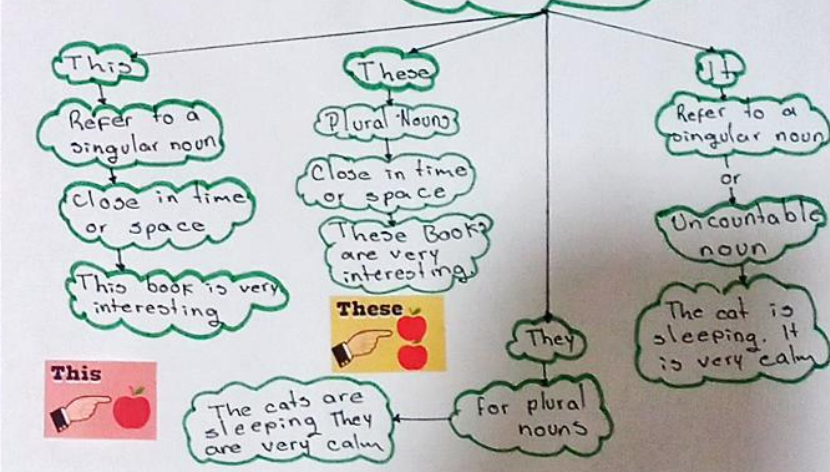 This
Refer to a
singular noun
Close in time
or space
This book is very
interesting
This
These
Plural Nouns
Close in time
or space
These Books
are very
interesting
These
They
for plural
nouns
The cats are
sleeping They
are very calm
It
Refer to a
singular noun
or
Uncountable
noun
The cat is
sleeping. It
is very calm